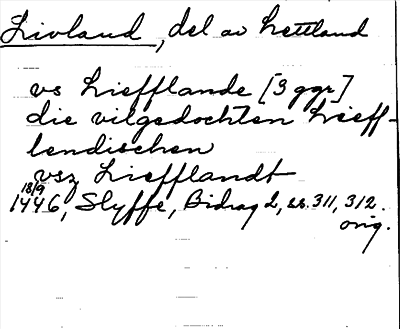 Livland, del av Lettland
vs Liefflande [3 ggr]
die vilgedochten Lieff-
lendischen
vsz Liefflandt
18/9
1446, Styffe, Bidrag 2, ss. 311, 312.
orig.